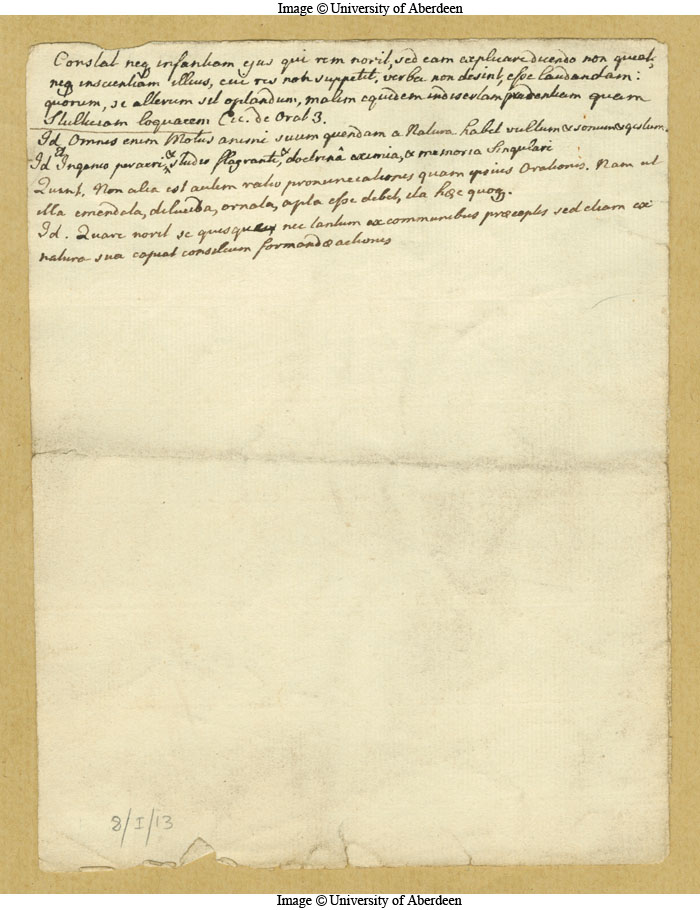 Image © University of Aberdeen
Constat neq infantiam ejus qui rem norit, sed eam explicare dicendo non queat,
neq inscientiam illius, cui res non suppetit, verba non desint, esse laudandam:
quorum, si alterum sit optandum, malim equidem indisertam prudentiam quam
Stultitiam loquacem Cic. de Orat 3.
Id. Omnis enim Motus animi suum quendam a Natura habet vultum & sonum & gestum.
Id Et Ingenio peracri & studio flagranti, & doctrinâ eximia, & memoria Singulari
Quint. Non alia est autem ratio pronunciationis quam ipsius Orationis. Nam ut
illa emendata, dilucida, ornata, apta esse debet, ita hæc quoq.
Id. Quare norit se quisque, nec tantum ex communibus præceptis sed etiam ex
natura sua capiat consilium formandæ actionis
8/I/13
Image © University of Aberdeen